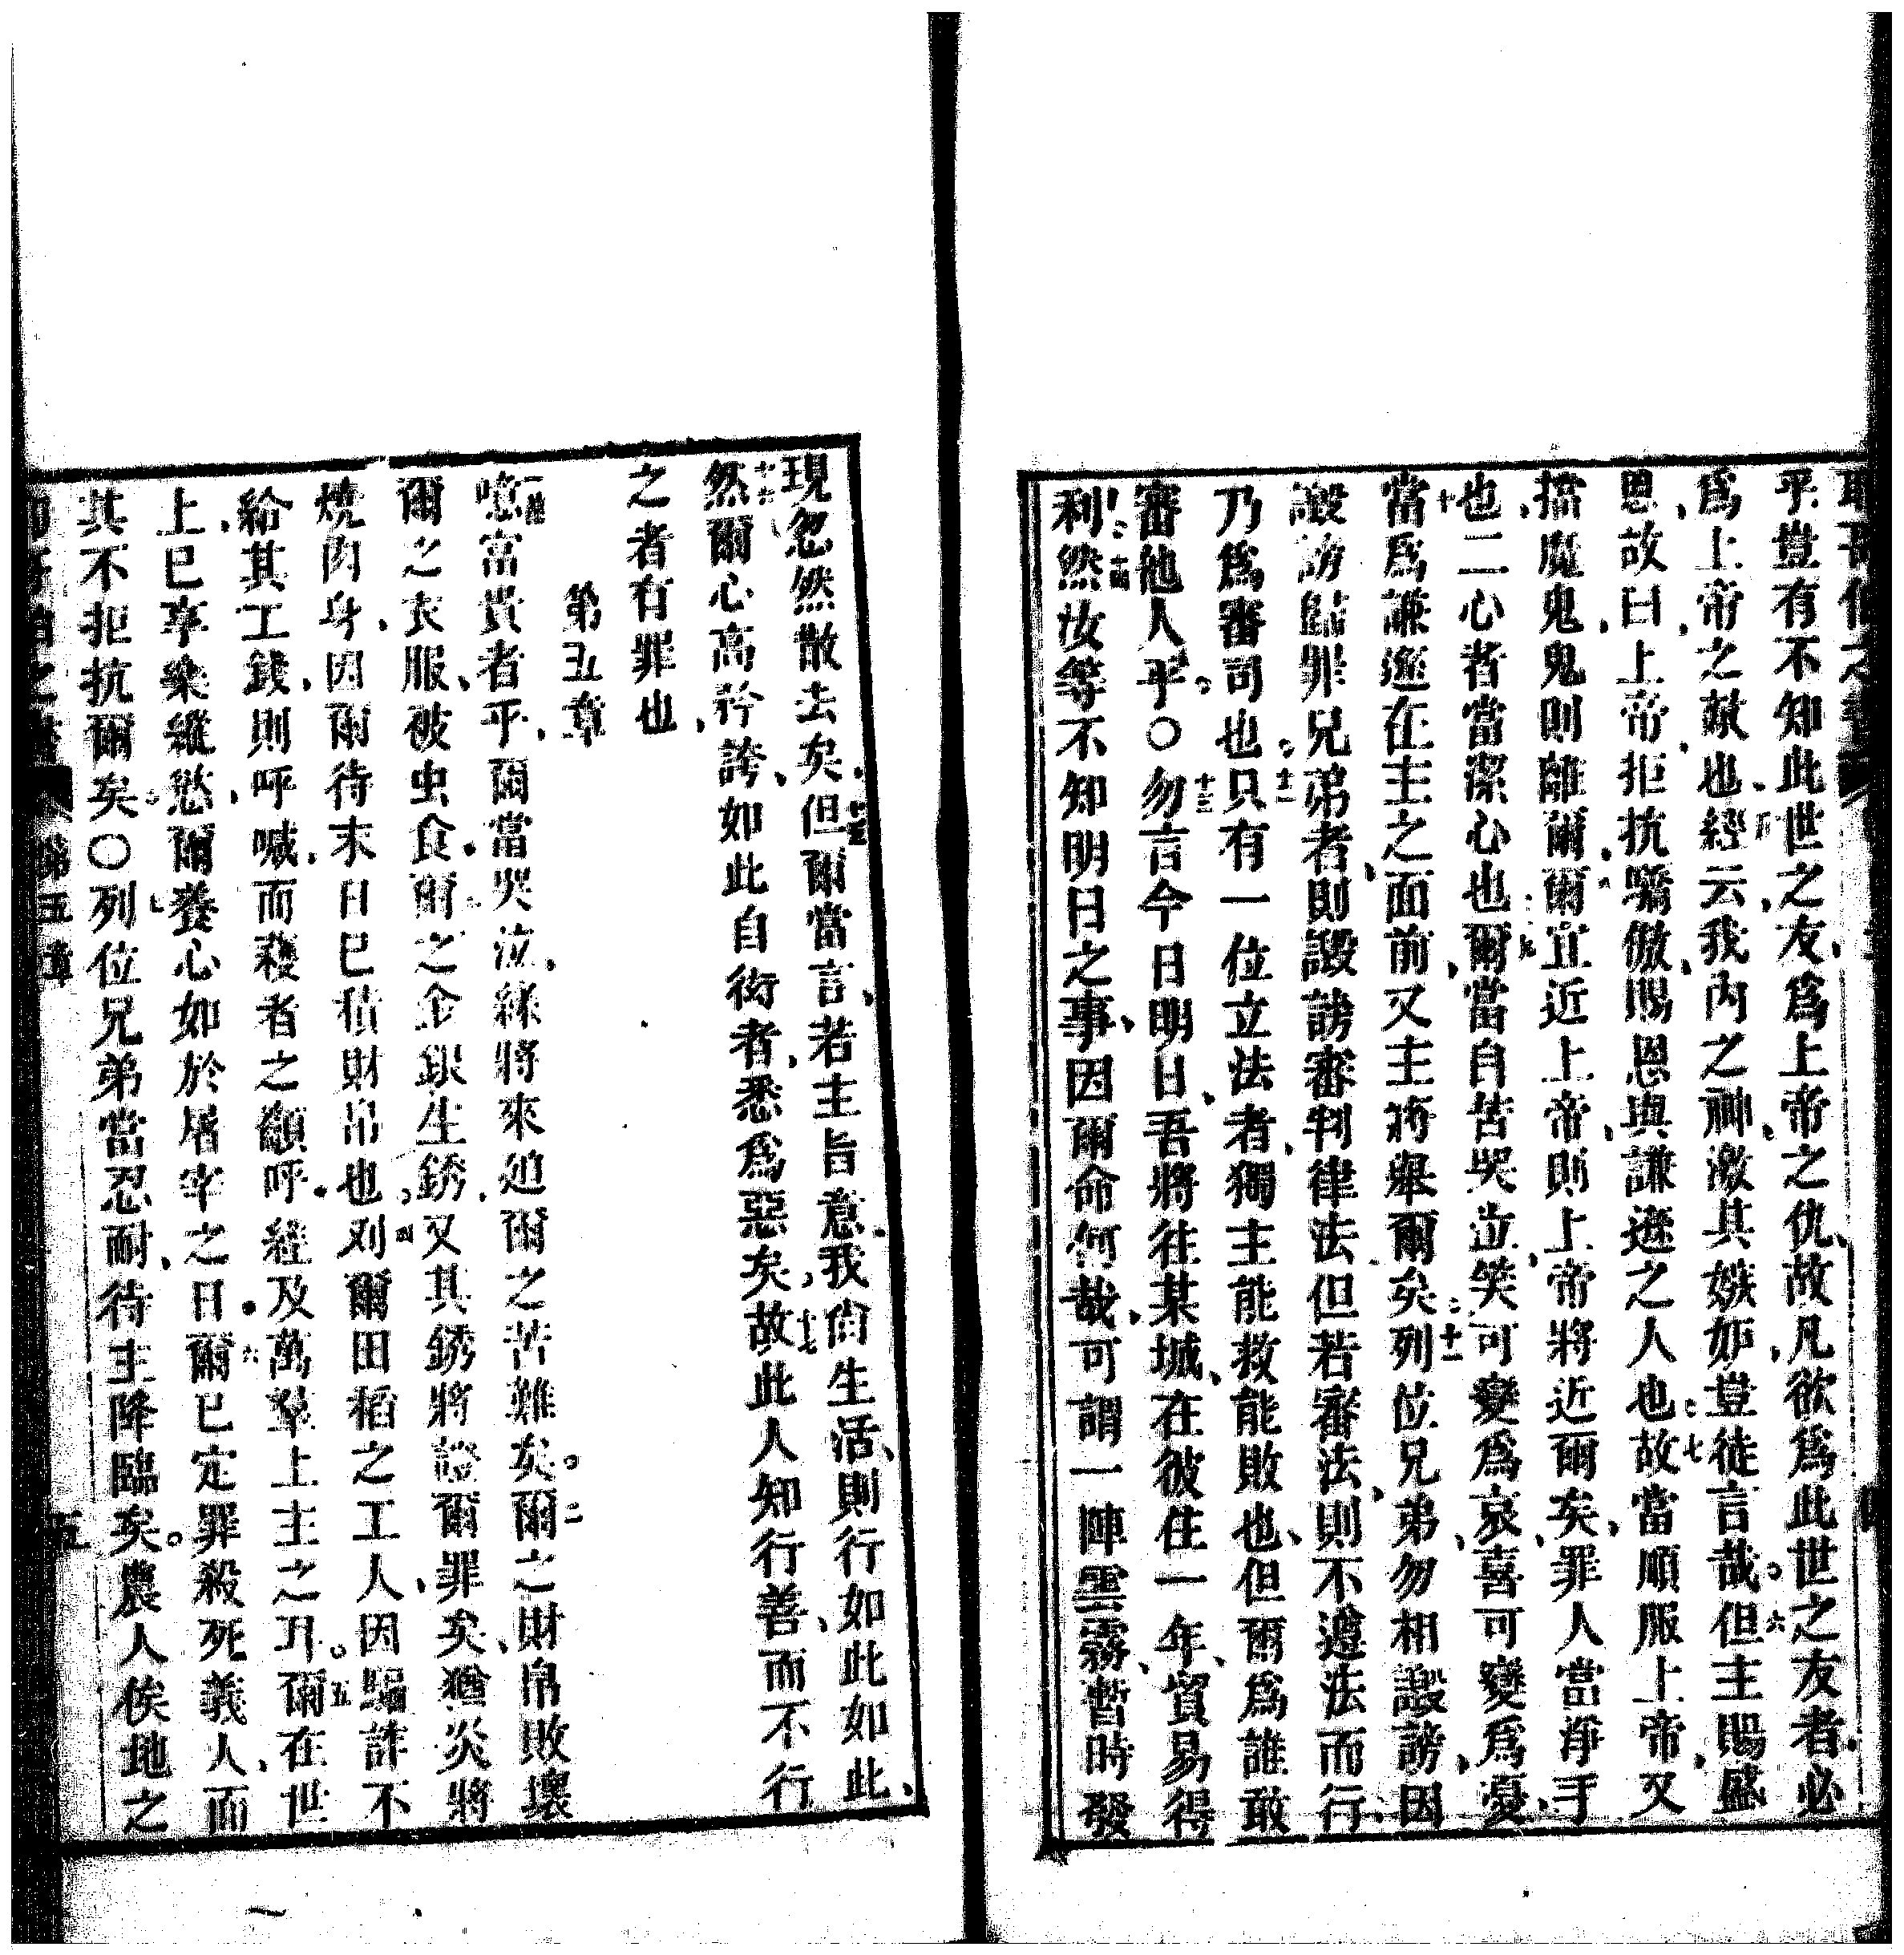 乎豈有不知此世之友爲上帝之仇故凡欲爲此世之友者必
爲上帝之敵也經云我內之神激其嫉妒豈徒言哉六但主賜盛
恩故曰上帝拒抗驕傲賜恩與謙遜之人也七故當順服上帝又
擋魔鬼鬼則離爾爾宜近上帝則上帝將近爾矣罪人當淨手
也二心者當潔心也爾當自苦哭泣笑可變爲哀喜可變爲憂
十當爲謙遜在主之面前又主將舉爾矣十一列位兄弟勿相譭謗因
譭謗歸罪兄弟者則譭謗審判律法但若審法則不遵法而行
乃爲審司也十二只有一位立法者獨主能救能敗也但爾爲誰敢
審他人乎○十三勿言今日明日吾將往某城在彼住一年貿易得
利十四然汝等不知明日之事因爾命何哉可謂一陣雲霧暫時發
現忽然散去矣十五但爾當言若主旨意我尙生活則行如此如此
十六然爾心高矜誇如此自衒者悉爲惡矣十七故此人知行善而不行
之者有罪也
第五章
一噫富貴者乎爾當哭泣緣將來迫爾之苦難矣二爾之財帛敗壞
爾之衣服被虫食三爾之金銀生銹又其銹將證爾罪矣猶炎將
燒肉身因爾待末日已積財帛也四刈爾田稻之工人因騙詐不
給其工錢則呼喊而穫者之籲呼經及萬羣上主之耳五爾在世
上已享樂縱慾爾養心如於屠宰之日六爾已定罪殺死義人而
其不拒抗爾矣○七列位兄弟當忍耐待主降臨矣農人俟地之
第五章
五